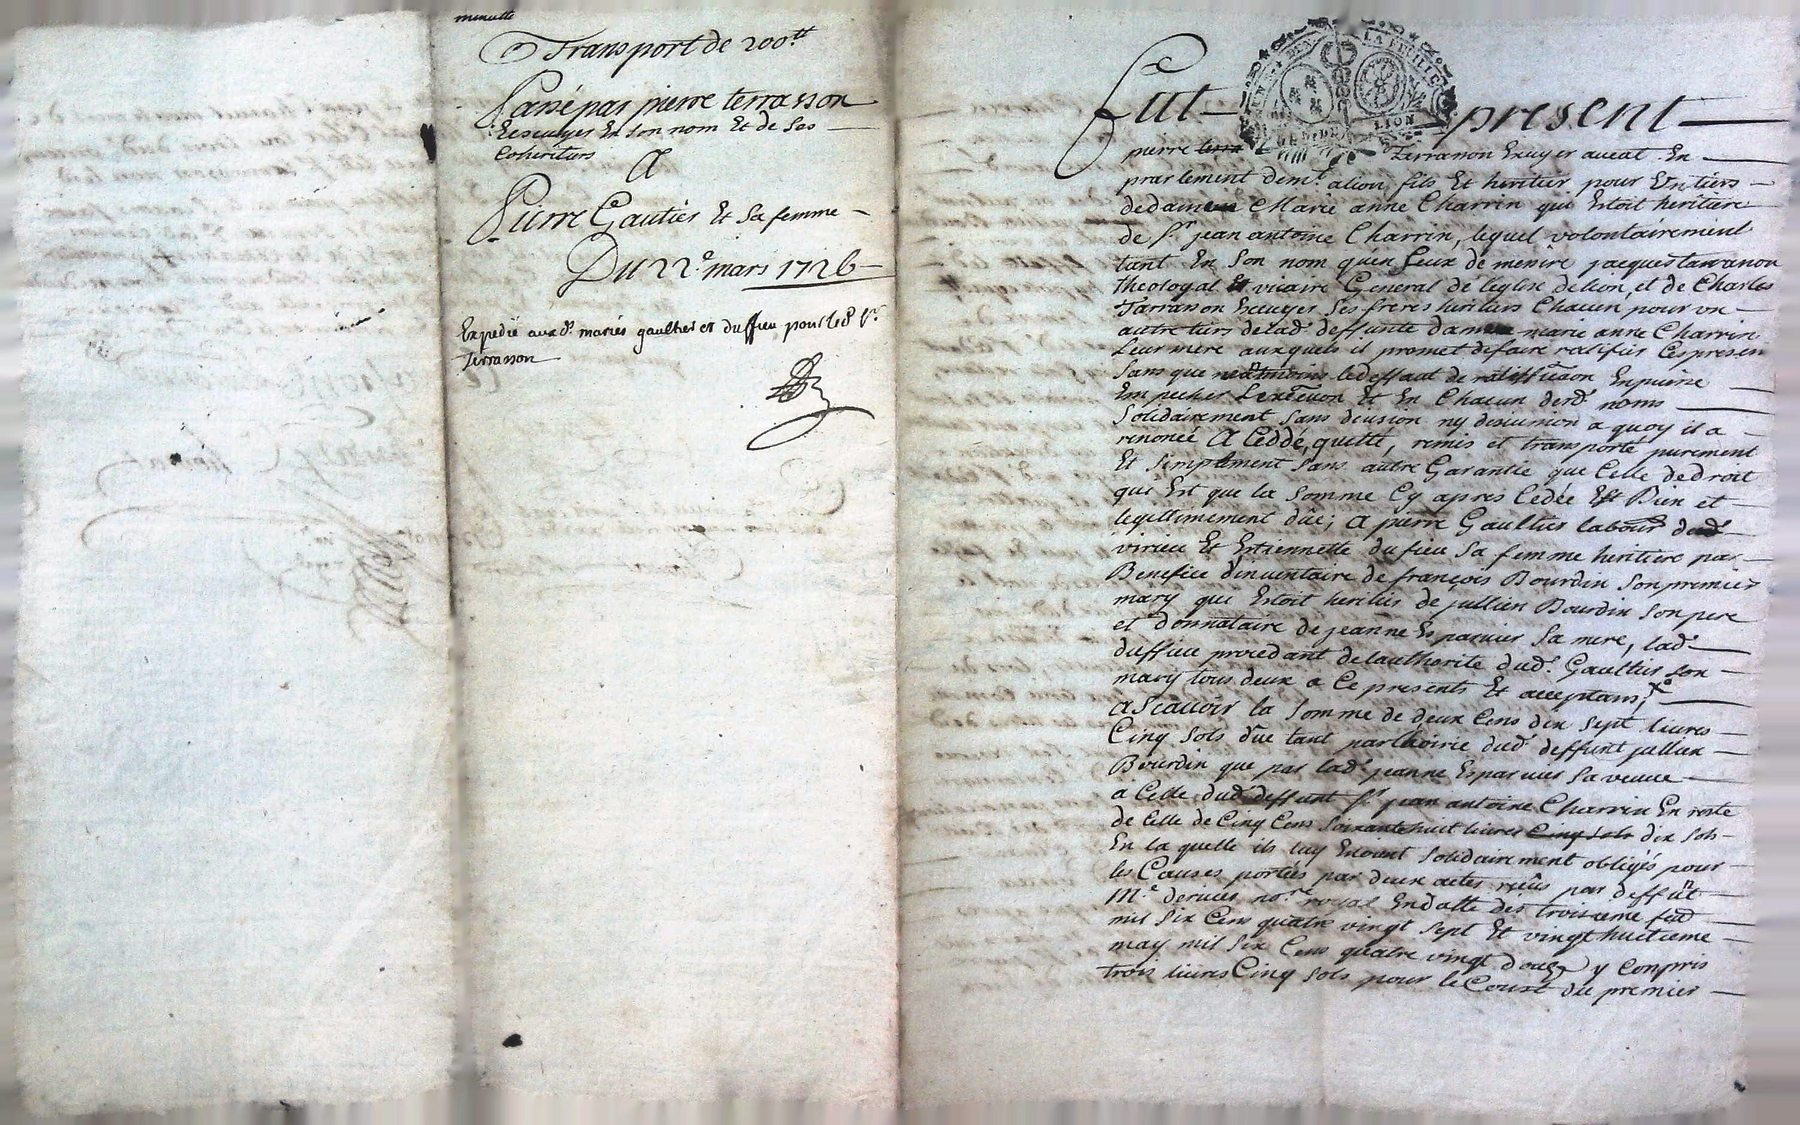 minutte
Transport de 200.tt
Passé par pierre terrasson
Escuyer En son nom Et de Ses
Coheritiers
A
Pierre Gautier Et Sa femme
Du 22.e mars 1726
Expedié aux d. mariés gaultier et duffieu pour led. Sr.
Terrasson
LA FEUILLE
GEN. DE LION
Fut present
pierre terra Terrasson Escuyer avocat En
parlement dem.t a lion fils Et heritier pour Un tiers
de dame Marie anne Charrin qui Estoit heritiere
de Sr. jean antoine Charrin, lequel volontairement
tant En Son nom qu'en Ceux de messire jacques tarrasson
Theologal Et vicaire General de l'eglise de lion, et de Charles
Tarrasson Escuyer Ses freres heritiers Chacun pour un
autre tiers de lad. deffunte dame marie anne Charrin
Leur mere auxquels il promet de faire ratifier Ces presen
Sans que neatmoins le deffaut de ratiffication En puisse
Empecher L'exetion Et En Chacun desd. noms
Solidairement Sans division ny desunion a quoy il a
renoncé A Ceddé, quitté, remis et transporté purement
Et Simplement Sans autre Garantie que Celle de Droit
qui Est que la Somme Cy apres Cedée Est Bien et
legittimement düe; A pierre Gaultier labour. dud.
virieu Et Estiennette dufieu Sa femme heritiere par
Benefice d'inventaire de françois Bourdin Son premier
mary qui Estoit heritier de jullien Bourdin Son pere
et donnataire de jeanne Esparvier Sa mere, lad.
duffieu procedant de l'authorité dud. Gaultier Son
mary tous deux a Ce presents Et acceptans;
AScavoir la Somme de deux Cens dix Sept livres
Cinq Sols düe tant par l'hoirie dud. deffunt jullien
Bourdin que par lad. jeanne Esparvier Sa veuve
a Celle dud. deffunt Sr. jean antoine Charrin En reste
de Celle de Cinq Cens Soixante huit livres Cinq Sols dix Sols
En la quelle ils luy Estoient Solidairement obligés pour
les Causes portées par deux actes reçus par deffunt
M.e no.re royal En datte des troisieme
mil Six Cens quatre vingt Sept Et vingt huitieme
may mil Six Cens quatre vingt douze y Conpris
trois livres Cinq Sols pour le Coust du premier